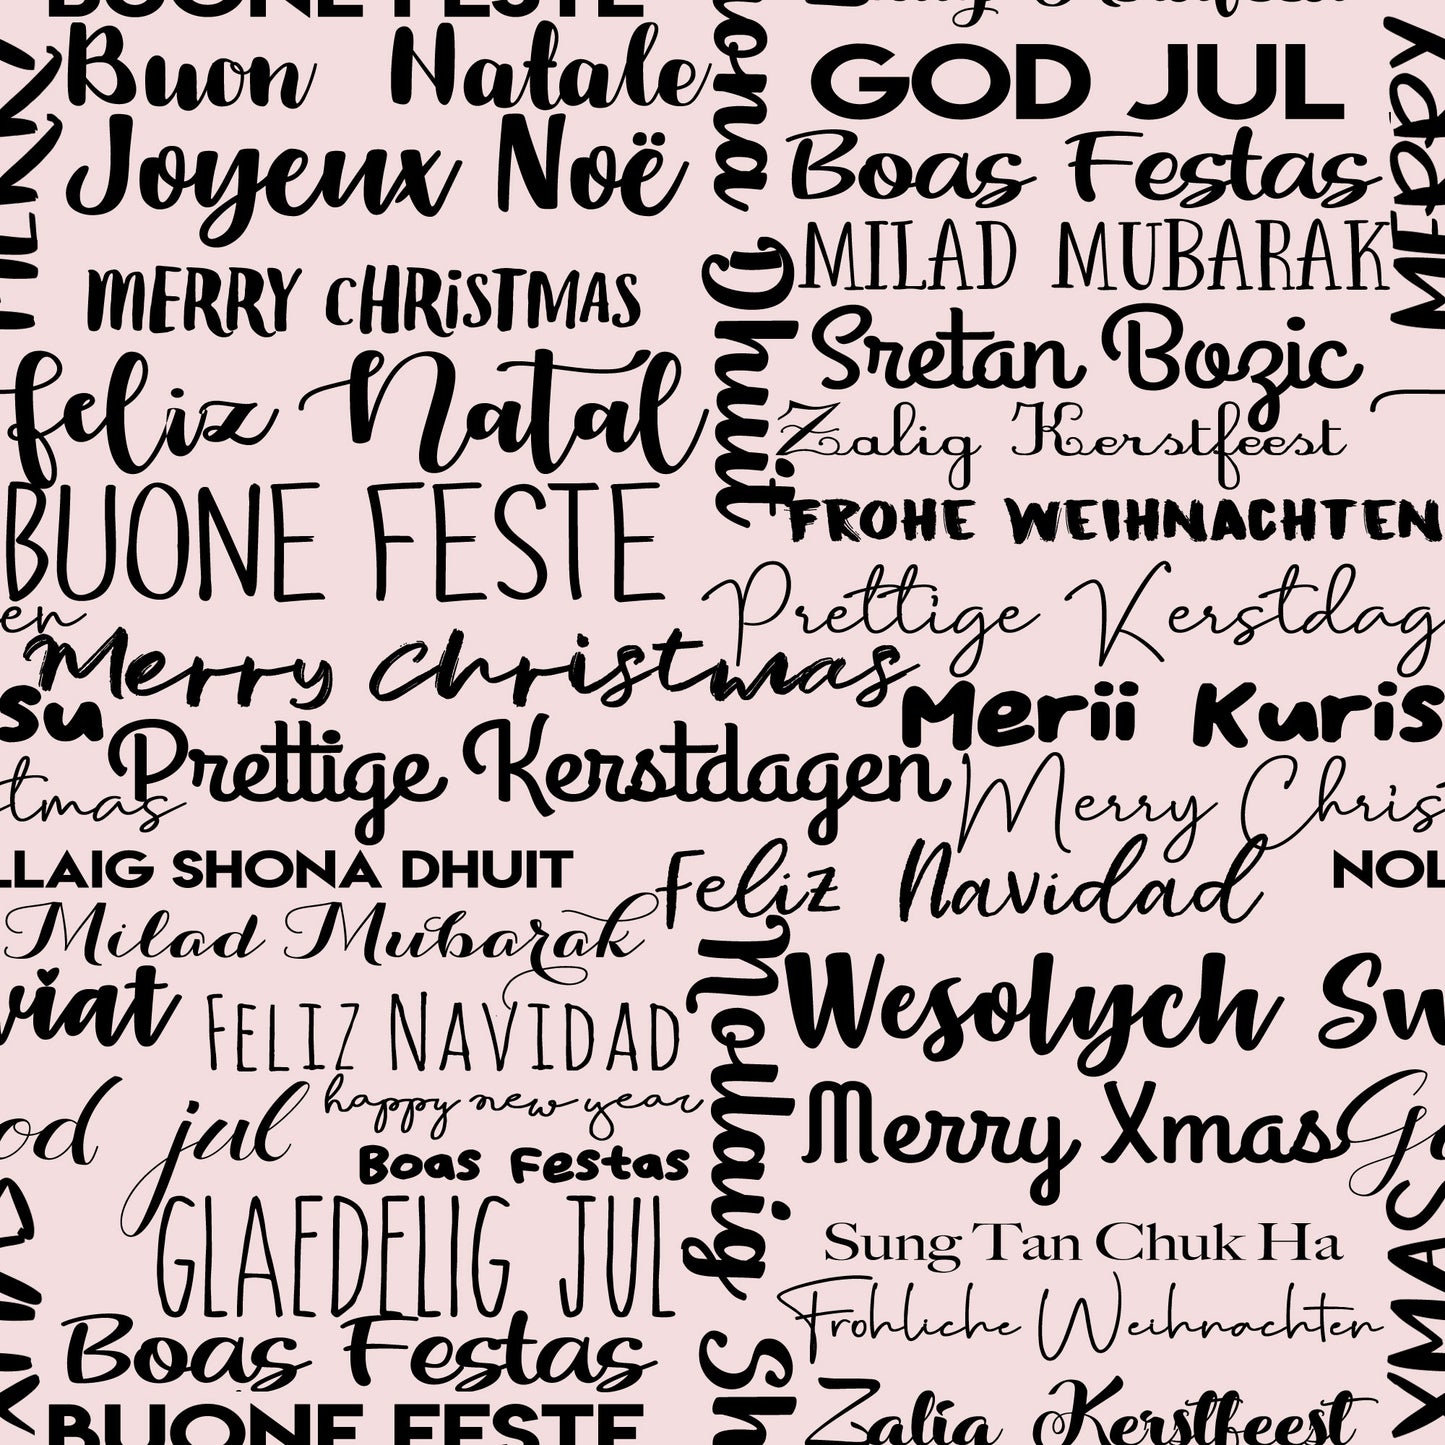 BUONE FESTE
Buon Natale
Joyeux Noë
MERRY CHRiSTMAS
feliz Natal
BUONE FESTE
en
Merry Christmas
su
Prettige Kerstdagen
tmas
LLAIG SHONA DHUIT
Milad Mubarak
viat
FELIZ NAVIDAD
od jul
happy new year
Boas Festas
GLAEDELIG JUL
Boas Festas
BUONE FESTE
hona Dhuit
Nollaig Sh
GOD JUL
Boas Festas
MILAD MUBARAK
Sretan Bozic
Zalig Kerstfeest
FROHE WEIHNACHTEN
Prettige Kerstdag
Merii Kuris
Merry Christ
Feliz Navidad
NOL
Wesolych Sw
Merry Xmas
Go
Sung Tan Chuk Ha
Frohliche Weihnachten
Zalig Kerstfeest
MERRY
XMAS